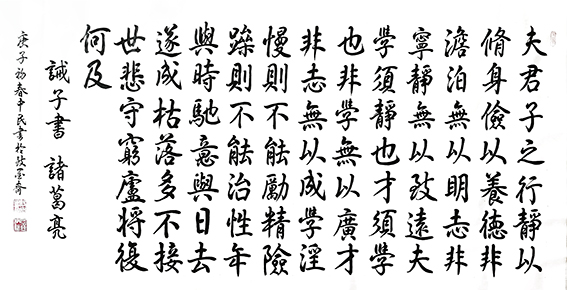 夫君子之行靜以
脩身儉以養德非
澹泊無以明志非
寧靜無以致遠夫
學須靜也才須學
也非學無以廣才
非志無以成學淫
慢則不能勵精險
躁則不能治性年
與時馳意與日去
遂成枯落多不接
世悲守窮廬將復
何及
誡子書 諸葛亮
庚子初春中民書於齋